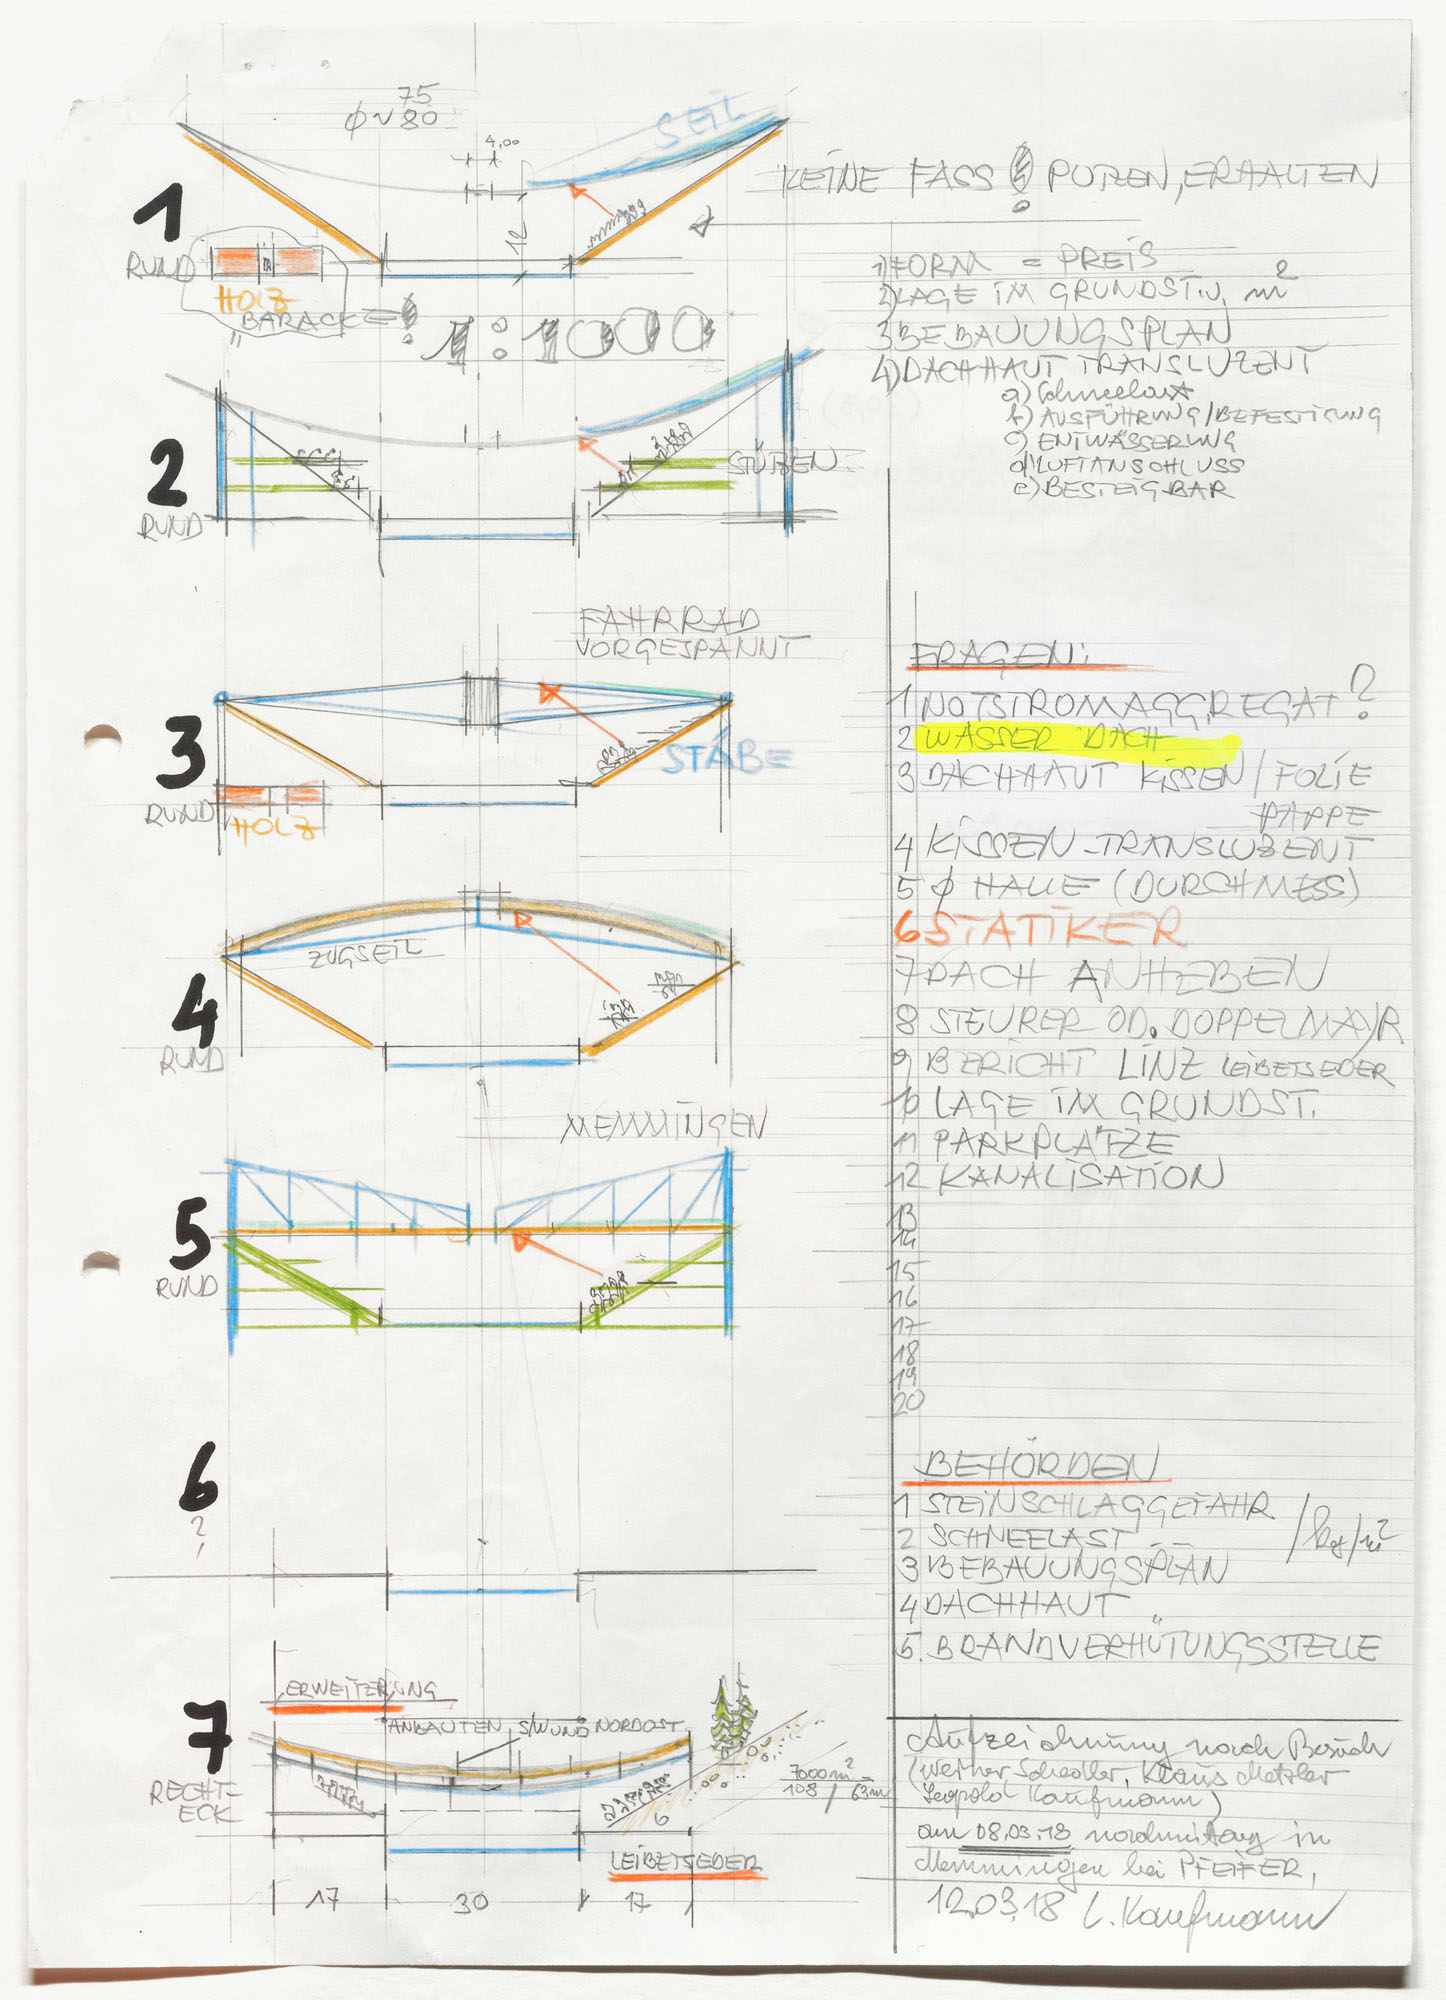 75
φ ~ 80
4,00
SEIL
KEINE FASS ! PUTZEN, ERHALTEN
1
RUND
12
HOLZ
BARACKE !
1:1000
1) FORM = PREIS
2) LAGE IM GRUNDST. U. m²
3 BEBAUUNGSPLAN
4) DACHHAUT TRANSLUZENT
a) Schneelast
b) AUSFÜHRUNG / BEFESTIGUNG
c) ENTWÄSSERUNG
d) LUFTANSCHLUSS
e) BESTEIGBAR
2
RUND
STÜTZEN
FAHRRAD
VORGESPANNT
3
RUND
STÄBE
HOLZ
4
RUND
ZUGSEIL
MEMMINGEN
5
RUND
6
?
7
RECHT-
ECK
ERWEITERUNG
ANBAUTEN S/W UND NORDOST
7000 m²
108 / 63m
6
LEIBETSEDER
17
30
17
FRAGEN:
1 NOTSTROMAGGREGAT?
2 WASSER DACH
3 DACHHAUT KISSEN / FOLIE
PAPPE
4 KISSEN - TRANSLUZENT
5 φ HALLE (DURCHMESS)
6 STATIKER
7 DACH ANHEBEN
8 STEURER OD. DOPPELMAYR
9 BERICHT LINZ LEIBETSEDER
10 LAGE IM GRUNDST.
11 PARKPLÄTZE
12 KANALISATION
13
14
15
16
17
18
19
20
BEHÖRDEN
1 STEINSCHLAGGEFAHR
2 SCHNEELAST / kg/m²
3 BEBAUUNGSPLAN
4 DACHHAUT
5. BRANDVERHÜTUNGSSTELLE
Aufzeichnung nach Besuch
(Werner Schedler, Klaus Metzler
Leopold Kaufmann)
am 08.03.18 nachmittag in
Memmingen bei PFEIFER,
12.03.18 L. Kaufmann